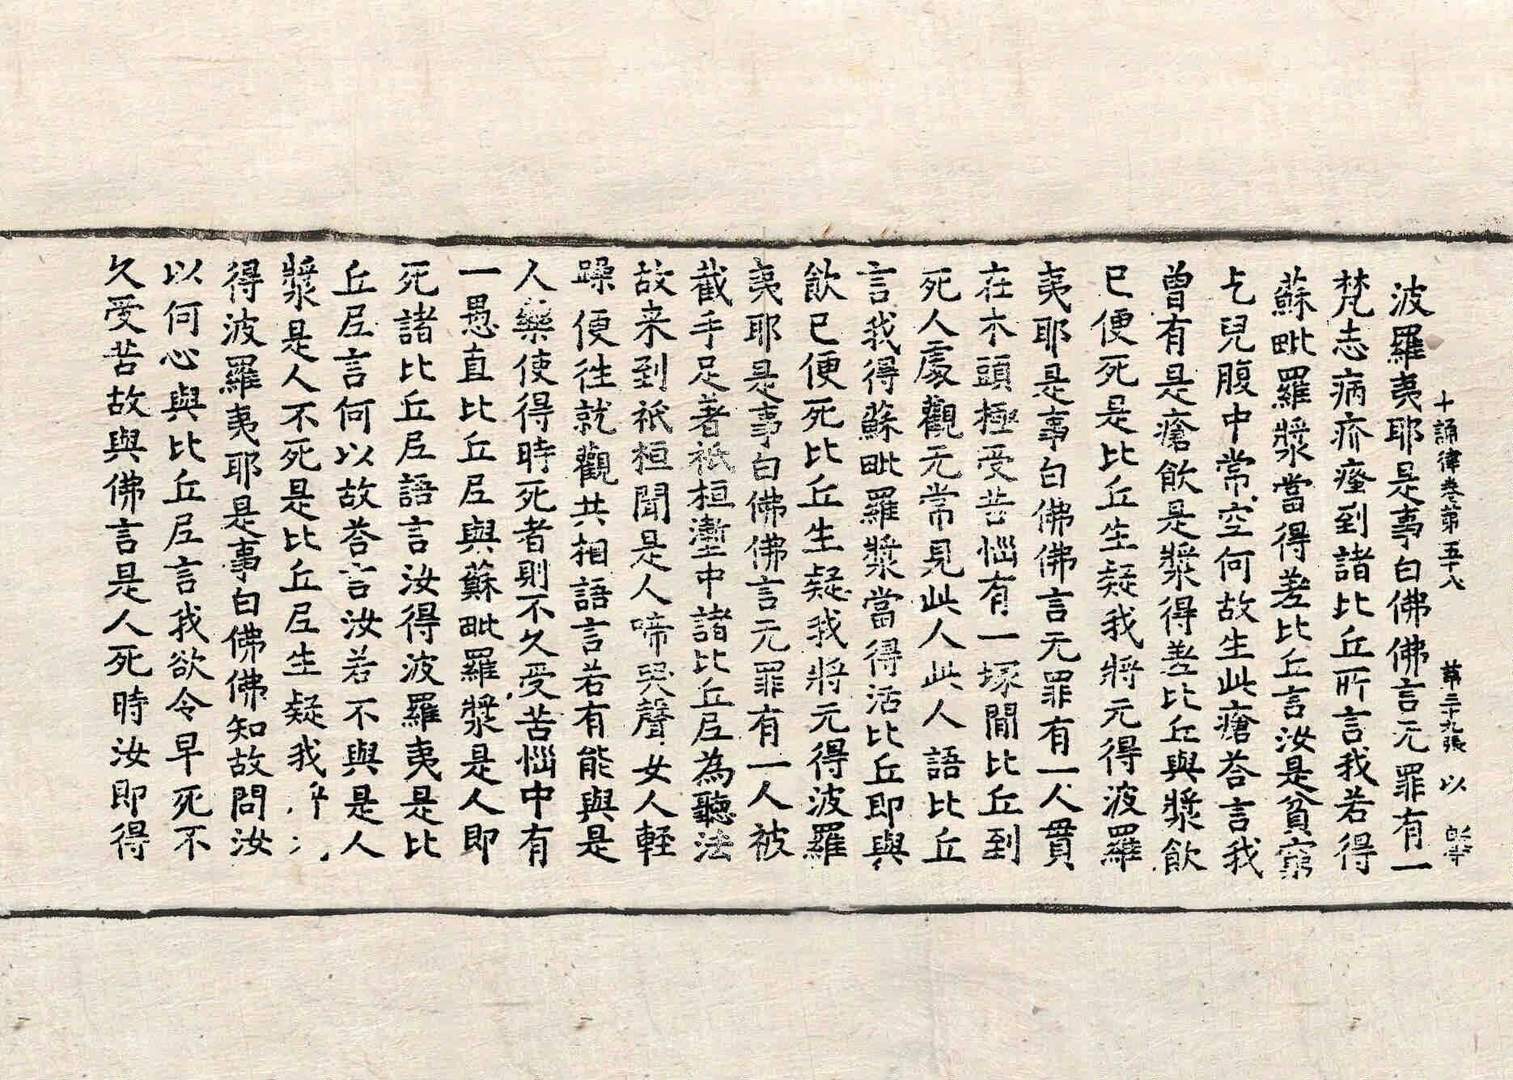 十誦律卷第五十八　第三十九張　以
波羅夷耶是事白佛佛言无罪有一
梵志病疥瘙到諸比丘所言我若得
蘇毗羅漿當得差比丘言汝是貧窮
乞兒腹中常空何故生此瘡荅言我
曽有是瘡飲是漿得差比丘與漿飲
已便死是比丘生疑我將无得波羅
夷耶是事白佛佛言无罪有一人貫
在木頭極受苦惱有一塚間比丘到
死人處觀无常見此人此人語比丘
言我得蘇毗羅漿當得活比丘即與
飲已便死比丘生疑我將无得波羅
夷耶是事白佛佛言无罪有一人被
截手足著祇桓壍中諸比丘尼為聽法
故来到祇桓聞是人啼哭聲女人輕
躁便往就觀共相語言若有能與是
人藥使得時死者則不久受苦惱中有
一愚直比丘尼與蘇毗羅漿是人即
死諸比丘尼語言汝得波羅夷是比
丘尼言何以故荅言汝若不與是人
漿是人不死是比丘尼生疑我
得波羅夷耶是事白佛佛知故問汝
以何心與比丘尼言我欲令早死不
久受苦故與佛言是人死時汝即得